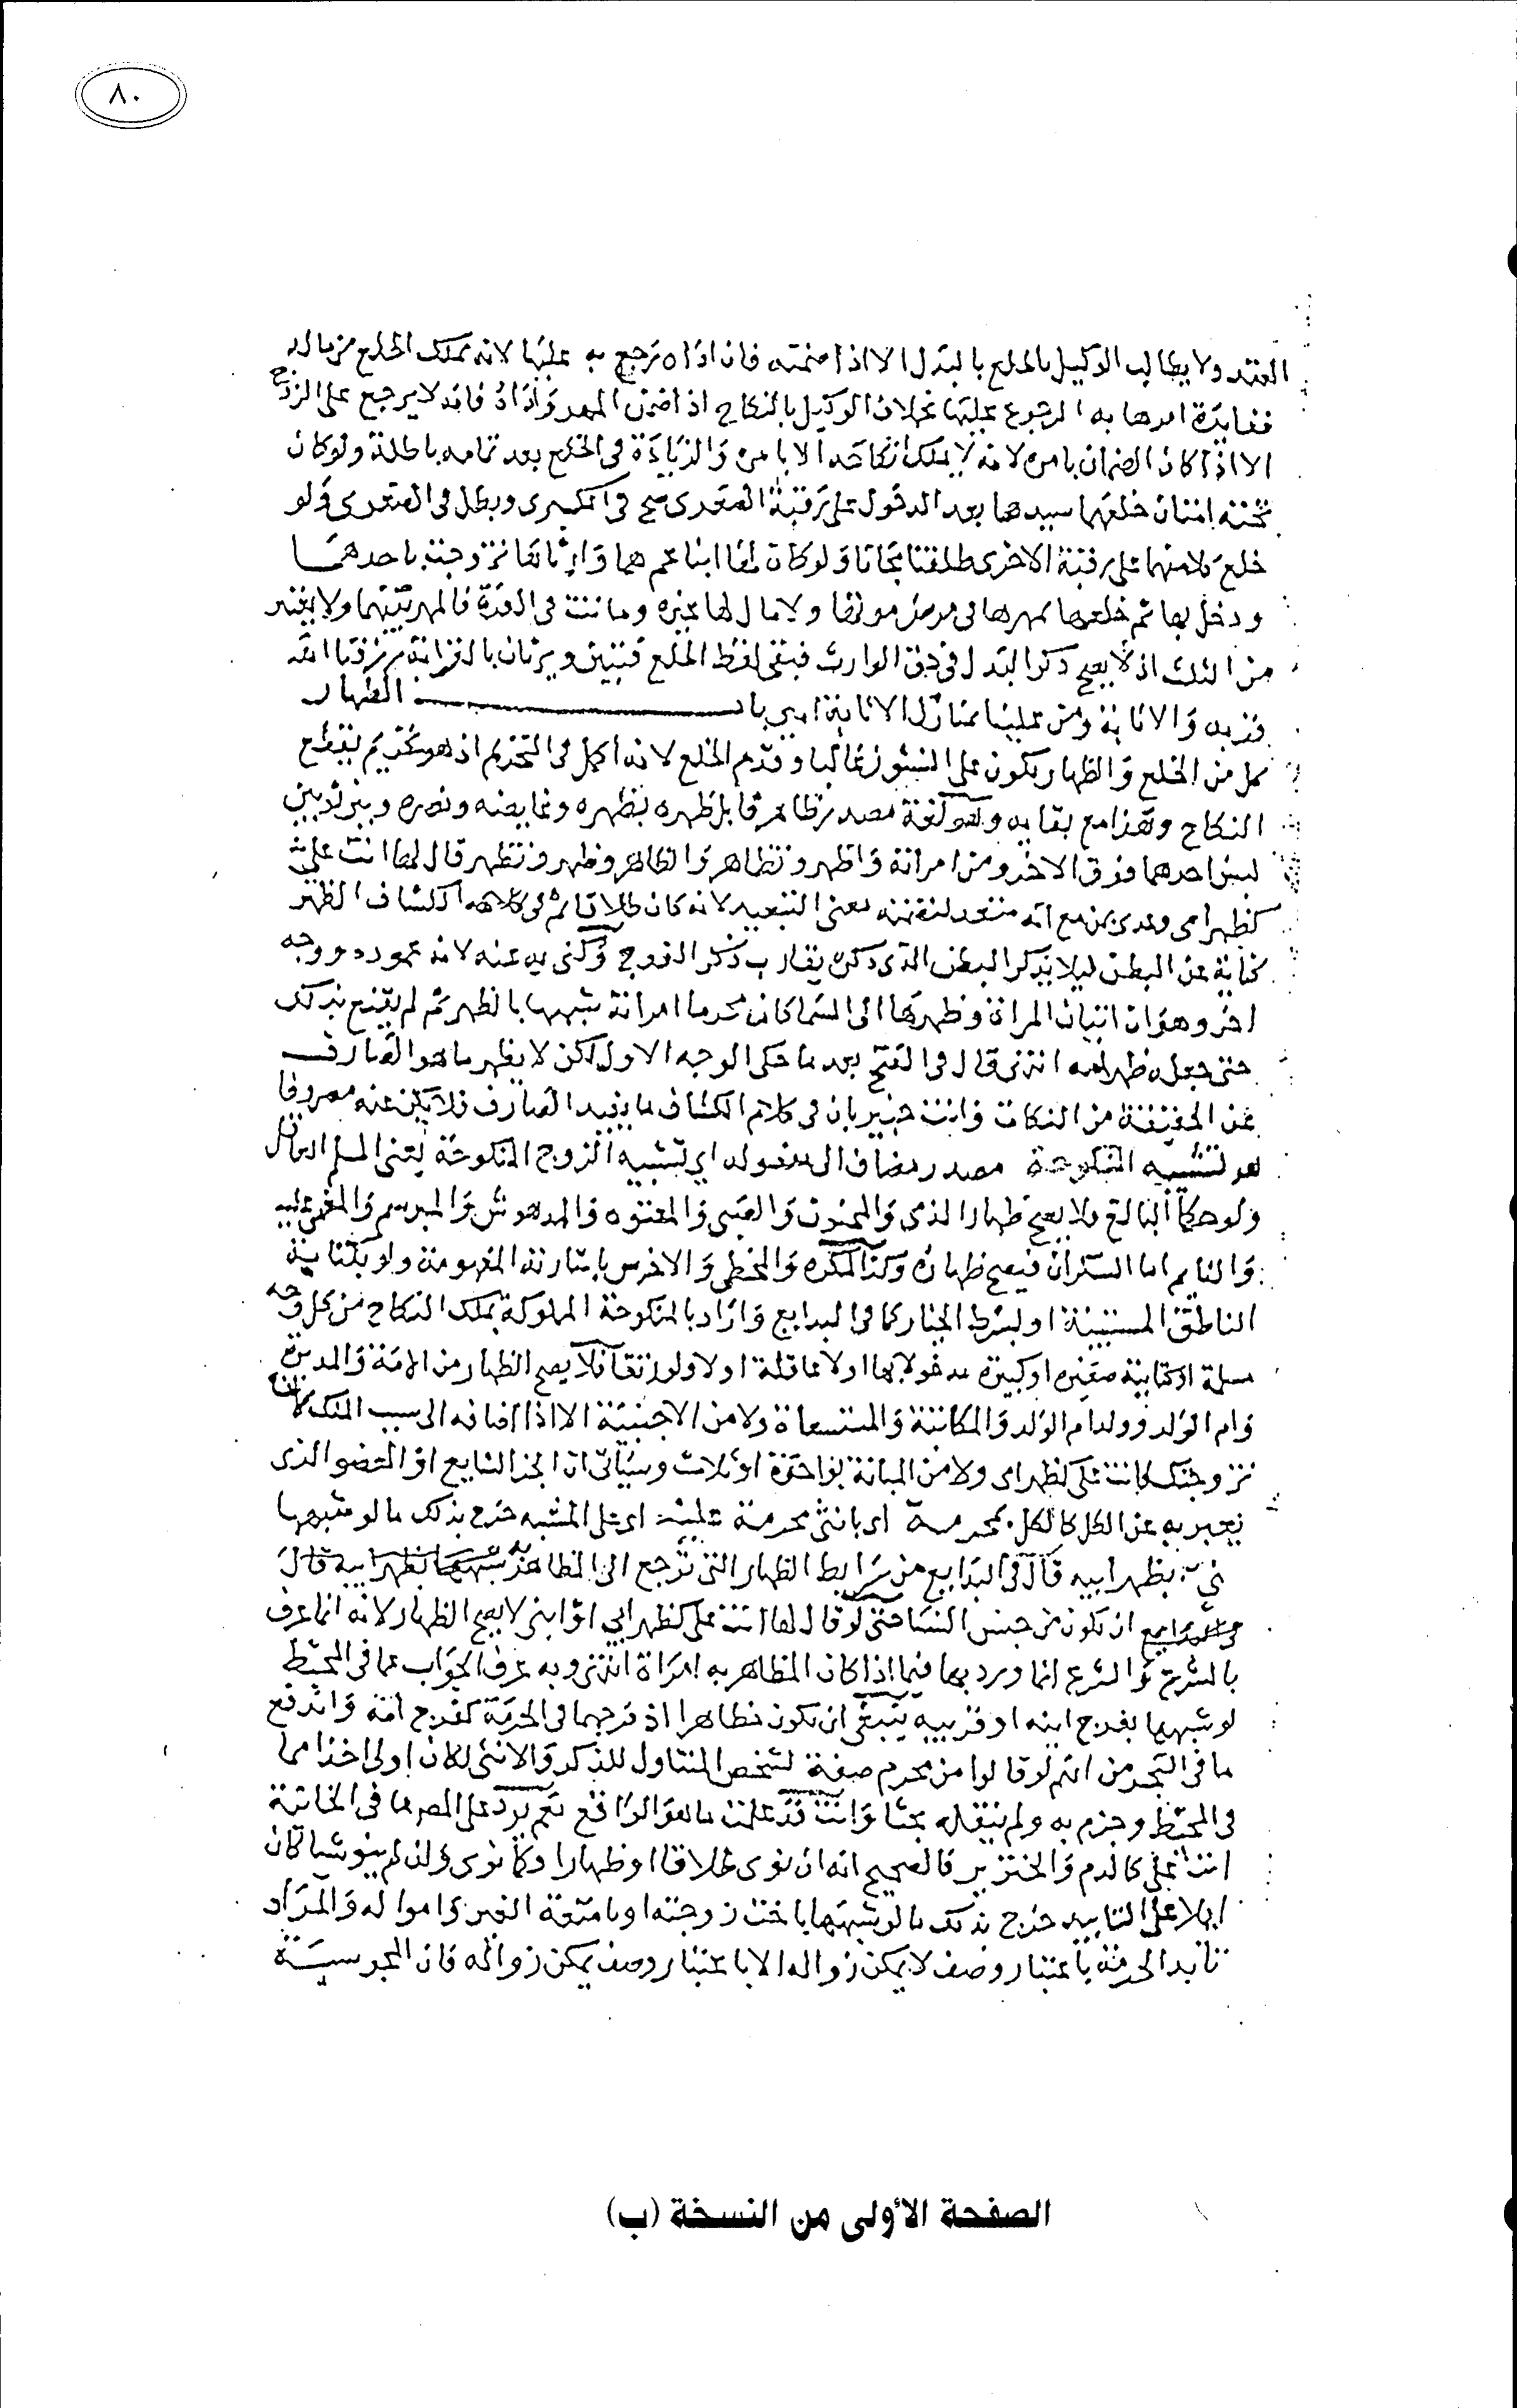 ٨٠
العقد ولا يطالب الوكيل بالخلع بالبدل الا اذا ضمنه فان اداه يرجع به عليها لانه يملك الخلع من ماله
ففايدة امرها به الرجوع عليها بخلاف الوكيل بالنكاح اذا ضمن المهر وادا فانه لا يرجع على الزوج
الا اذا كان الضمان بامره لانه لا يملك انكاحه الا بامره والزيادة في الخلع بعد تمامه باطلة ولو كان
تحته امتان خلعهما سيدهما بعد الدخول على رقبة الصغرى صح في الكبرى وبطل في الصغرى ولو
خلع كلا منهما على رقبة الاخرى طلقتا مجانا ولو كان لها ابنا عم هما وارثاها تزوجت باحدهما
ودخل بها ثم خلعها بمهرها في مرض موتها ولا مال لها غيره وماتت في العدة فالمهر بينهما ولا يعتبر
من الثلث اذ لا يصح ذكر البدل في حق الوارث فبقى لفظ الخلع فتبين ويرثان بالقرابة رزقنا الله
قربه والانابة ومن علينا بمنازل الانابة امين باب الظهار
كل من الخلع والظهار يكون على النشوز غالبا وقدم الخلع لانه اكمل في التحريم اذ هو تحريم بقطع
النكاح وهذا مع بقايه وهو لغة مصدر ظاهر قابل ظهره بظهره وغايضه ونصره وبين ثوبين
لبس احدهما فوق الاخر ومن امراته واظهر وتظاهر واظاهر وظهر وتظهر قال لها انت علي
كظهر امي وعدى بمن مع انه متعد لتضمنه معنى التبعيد لانه كان طلاقا ثم في كلامه اكشاف الظهر
كناية عن البطن ليلا يذكر البطن الذى ذكره يقارب ذكر الفرج وكنى به عنه لانه عموده ووجه
اخر وهو ان اتيان المراة وظهرها الى السما كان محرما امراته شبهها بالظهر ثم لم يقنع بذلك
حتى جعله ظهر امه انتهى قال في الفتح بعد ما حكى الوجه الاول لكن لا يظهر ما هو الصارف
عن الحقيقة من النكات وانت خبير بان في كلام الكشاف ما يفيد الصارف فلا يكن عنه مصروفا
هو تشبيه المنكوحة مصدر مضاف الى مفعوله اي تشبيه الزوج المنكوحة يعني المسلم العاقل
ولو حكما البالغ فلا يصح ظهار الذمى والمجنون والصبى والمعتوه والمدهوش والمبرسم والمغمى عليه
والنايم اما السكران فيصح ظهاره وكذا المكره والمخطي والاخرس باشارته المفهومة ولو بكتابة
الناطق المستبينة او بشرط الخيار كما في البدايع واراد بالمنكوحة المملوكة بملك النكاح من كل وجه
مسلمة او كتابية صغيره او كبيرة مدخولا بها اولا عاقلة اولا ولو رتقا فلا يصح الظهار من الامة والمدبرة
وام الولد وولد ام الولد والمكاتبة والمستسعاة ولا من الاجنبية الا اذا اضافه الى سبب الملك كان
تزوجتك فانت علي كظهر امى ولا من المبانة بواحدة او ثلاث وسياتي ان الجز الشايع او العضو الذى
يعبر به عن الكل كالكل بمحرمة اى بانثى محرمة عليه اى على المشبه خرج بذلك ما لو شبهها
بظهر ابيه قال في البدايع من شرايط الظهار التي ترجع الى المظاهر به
ان يكون من جنس النسا حتى لو قال لها انت علي كظهر ابي او ابني لا يصح الظهار لانه انما عرف
بالشرع والشرع انما ورد بها فيما اذا كان المظاهر به امراة انتهى وبه عرف الجواب عما في المحيط
لو شبهها بفرج ابيه او قريبه ينبغي ان يكون مظاهرا اذ فرجهما في الحرمة كفرج امه واندفع
ما في البحر من انهم لو قالوا من محرم صفة لشخص المتناول للذكر والانثى لكان اولى اخذا مما
في المحيط وجزم به ولم ينقله بحثا وانت قد علمت ما هو الواقع نعم يرد على المصر ما في الخانية
انت علي كالدم والخنزير فالصحيح انه ان نوى طلاقا او ظهارا فكما نوى وان لم ينو شيا كان
ايلا على التابيد خرج بذلك ما لو شبهها باخت زوجته او بامتعة الغير واموا له والمراد
تابد الحرمة باعتبار وصف لا يمكن زواله الا باعتبار وصف يمكن زواله فان المجوسية
الصفحة الأولى من النسخة (ب)